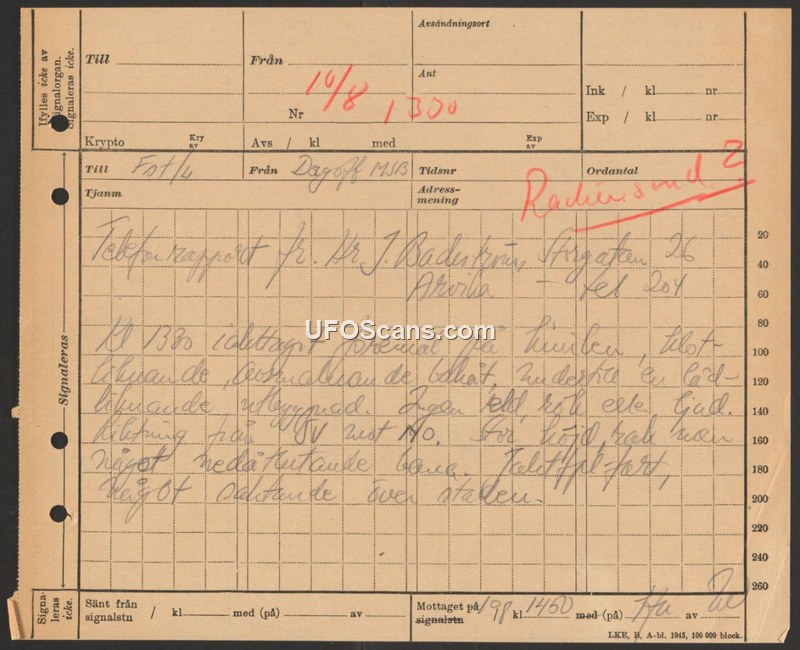 Ifylles icke av
signalorgan.
Signaleras icke.
Till
Från
Avsändningsort
10/8 1330
Ant
Nr
Ink / kl nr
Exp / kl nr
Krypto
Kry
av
Avs / kl med
Exp
av
Till Fst/L
Från Dagoff MSB
Tidsnr
Ordantal
Tjanm
Adress-
mening
2
Telefonrapport fr. Hr J. Badström, Storgatan 26
Arvika - tel 204
Kl 1330 iakttagit föremål på himlen, klot-
liknande, avsmalnande bakåt, undertill en låd-
liknande utbyggnad. Ingen eld, rök eller ljud.
Riktning från SV mot NO. Stor höjd, rak men
något nedåtlutande bana. Jaktfpl-fart,
något saktande över staden.
20
40
60
80
100
120
140
160
180
200
220
240
260
Signaleras
UFOScans.com
Signa-
leras
icke.
Sänt från
signalstn / kl med (på) av
Mottaget på
signalstn 198 kl 1450 med (på) av
LKE, B, A-bl. 1945, 100 000 block.